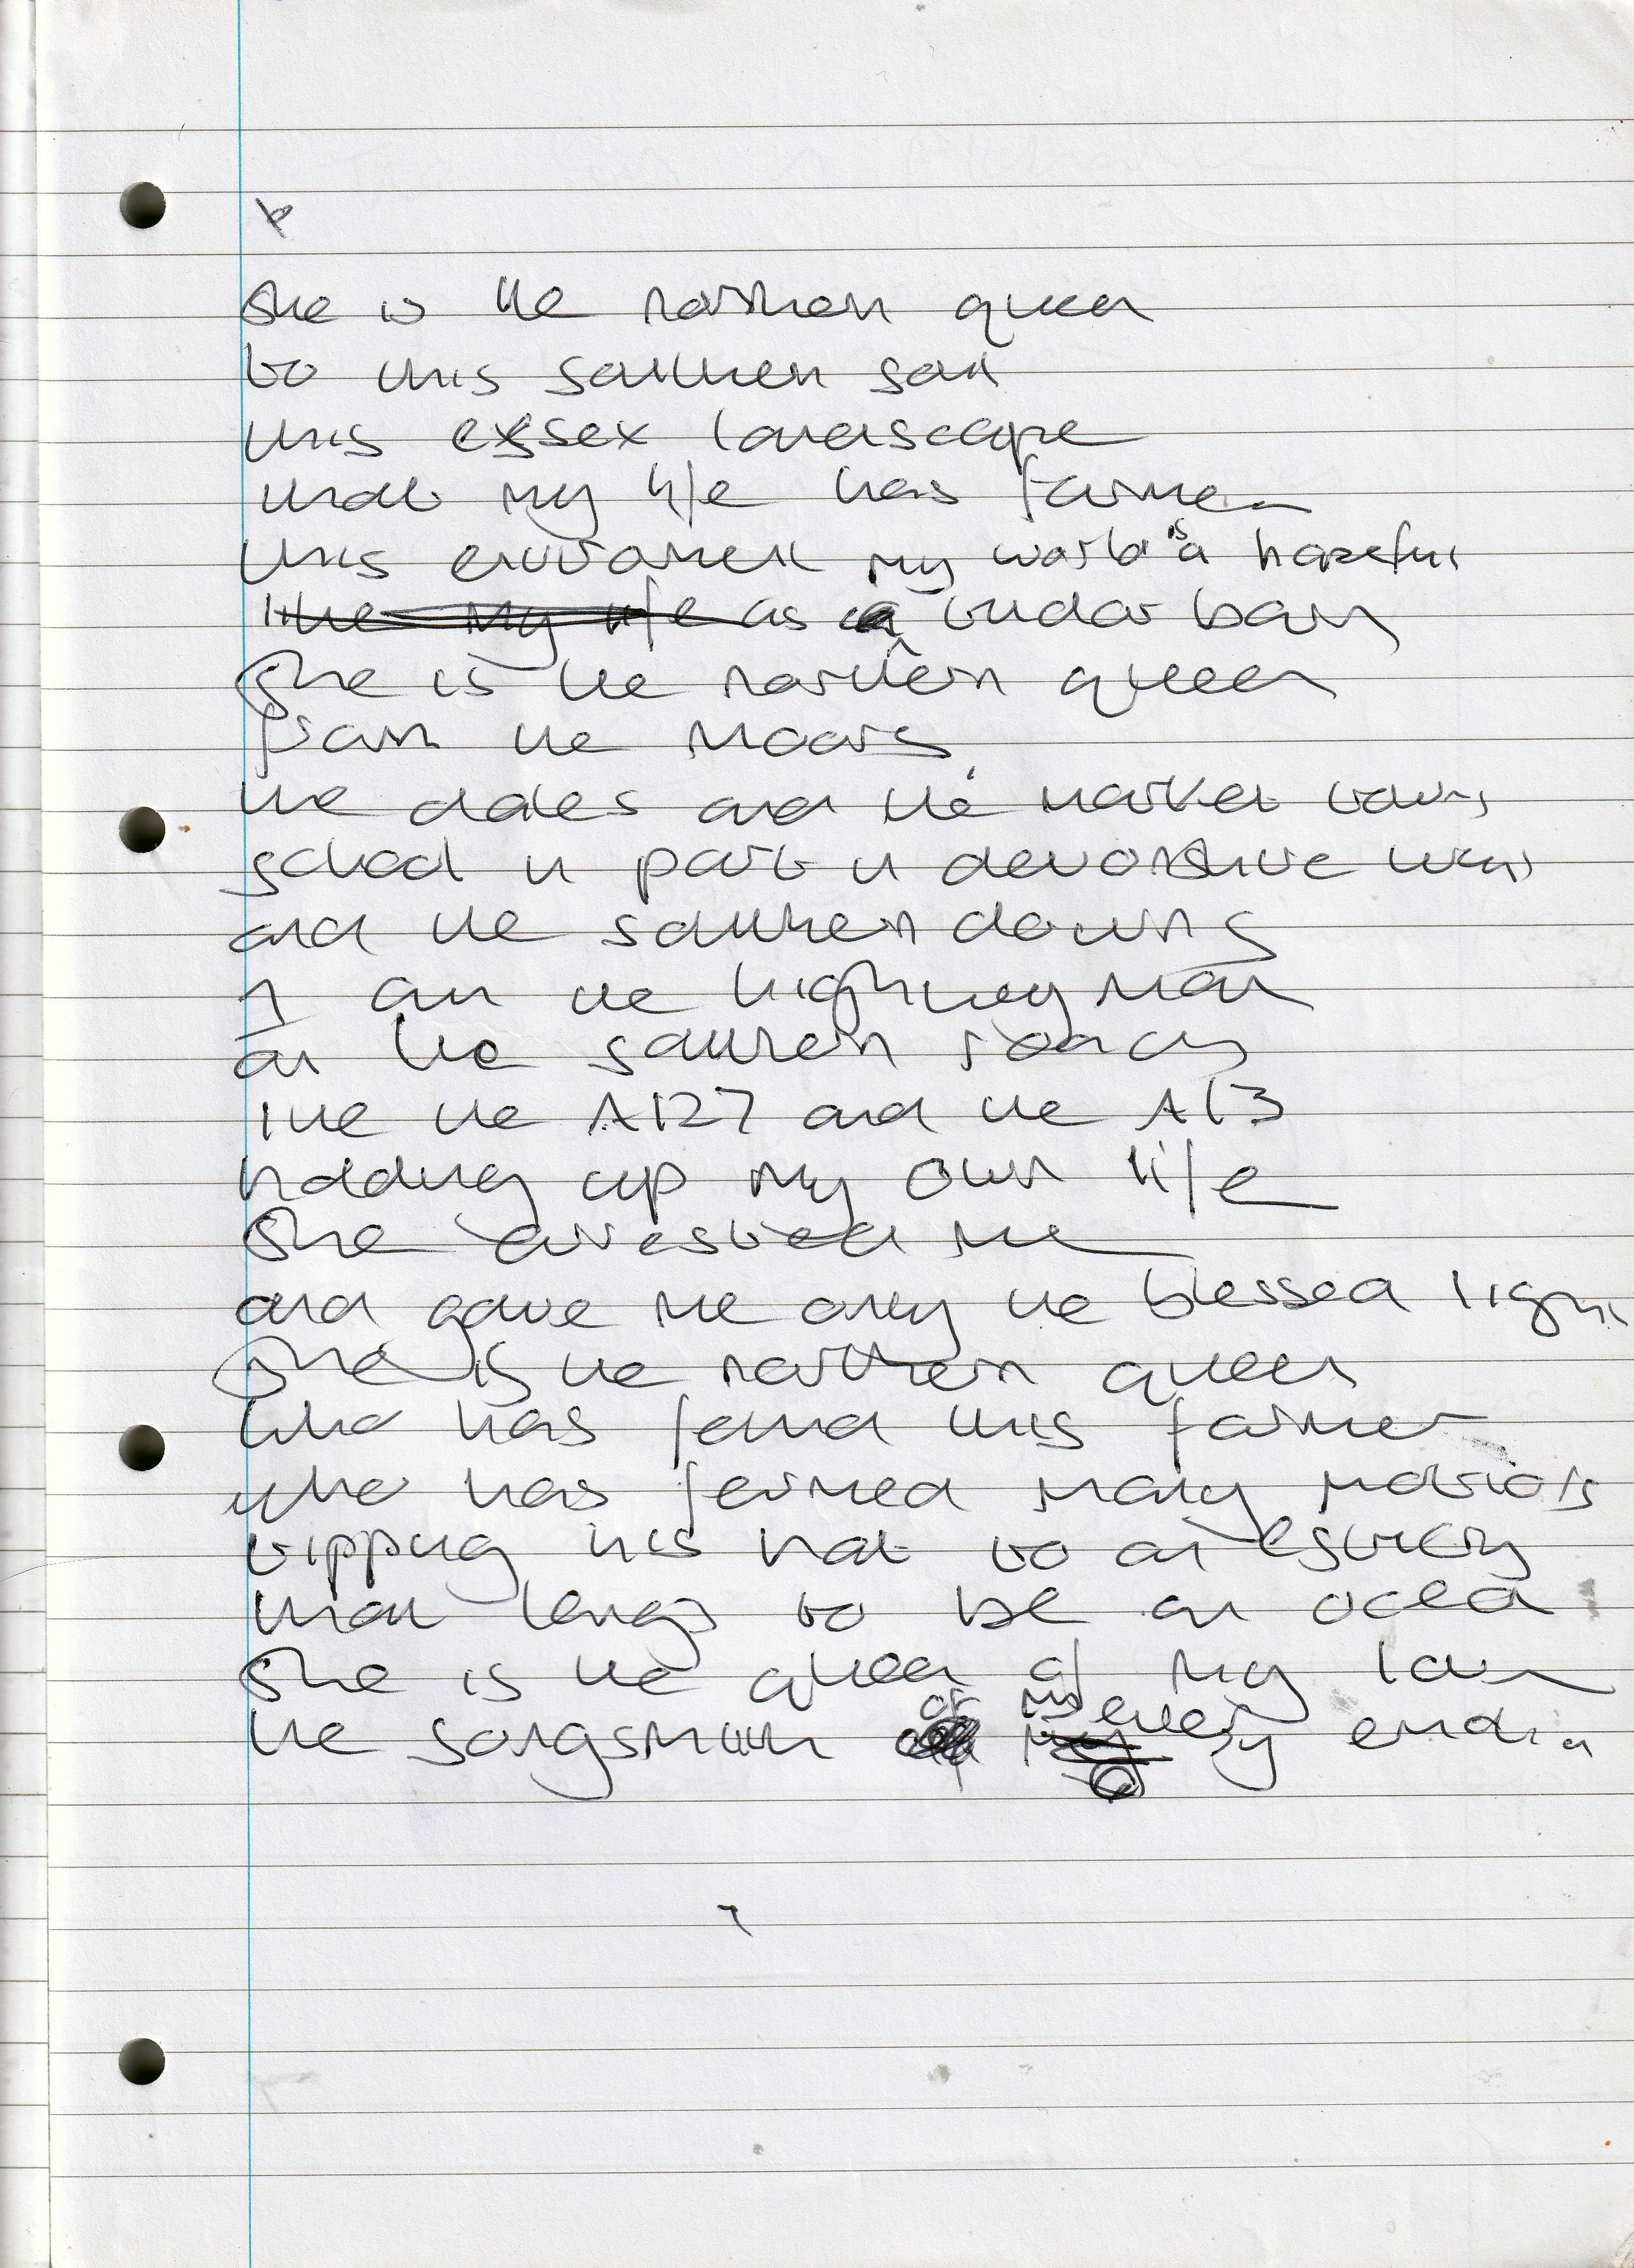 She is the northern queen
to this southern soul
this essex landscape
that my life has farmed
this enviroment my world is a hopeful
as a tudor barn
She is the northern queen
from the moors
the dales and the market towns
school in part in devonshire ways
and the southern downs
I am the highwayman
on the southern roads
like the A127 and the A13
holding up my own life
She arrested me
and gave me only the blessed light
She is the northern queen
who has found this farmer
who has farmed many
tipping his hat to an estuary
that longs to be an ocean
She is the queen of my law
the songsmith of my every